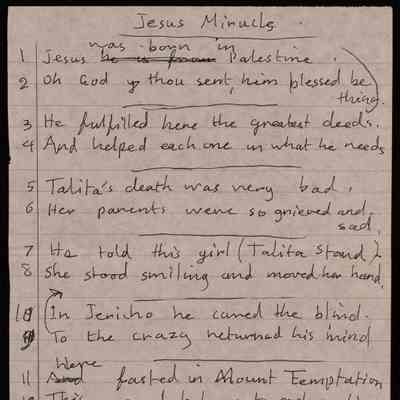 Jesus Miracle.
was born in
1 Jesus he is from Palestine.
2 Oh God thou sent him blessed be
thing.
3 He fulfilled here the greatest deeds.
4 And helped each one in what he needs
5 Talita's death was very bad.
6 Her parents were so grieved and
sad.
7 He told this girl (Talita stand)
8 She stood smiling and moved her hand.
10 In Jericho he cured the blind.
9 To the crazy returned his mind
Here
11 And fasted in Mount Temptation